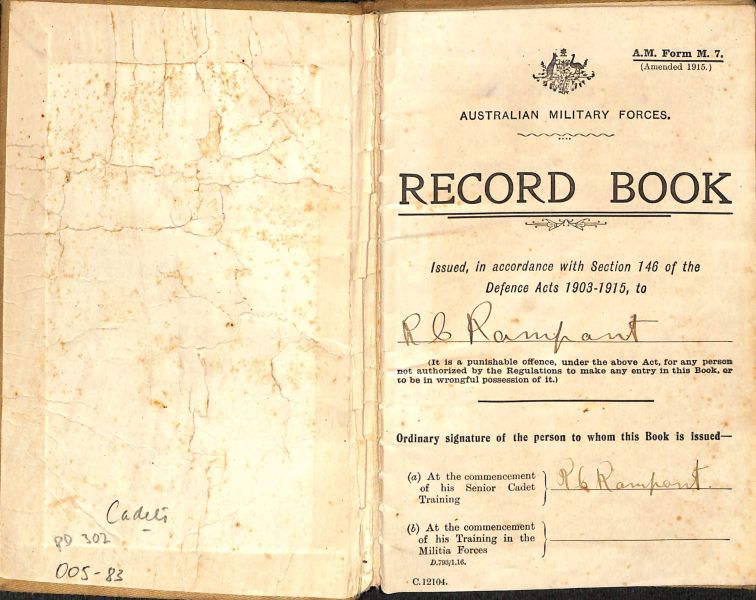 Cadets
PD 302
005-83
A.M. Form M. 7.
(Amended 1915.)
AUSTRALIAN MILITARY FORCES.
RECORD BOOK
Issued, in accordance with Section 146 of the
Defence Acts 1903-1915, to
R C Rampant
(It is a punishable offence, under the above Act, for any person
not authorized by the Regulations to make any entry in this Book, or
to be in wrongful possession of it.)
Ordinary signature of the person to whom this Book is issued—
(a) At the commencement
of his Senior Cadet
Training
R C Rampant.
(b) At the commencement
of his Training in the
Militia Forces
D.793/1.16.
C.12104.